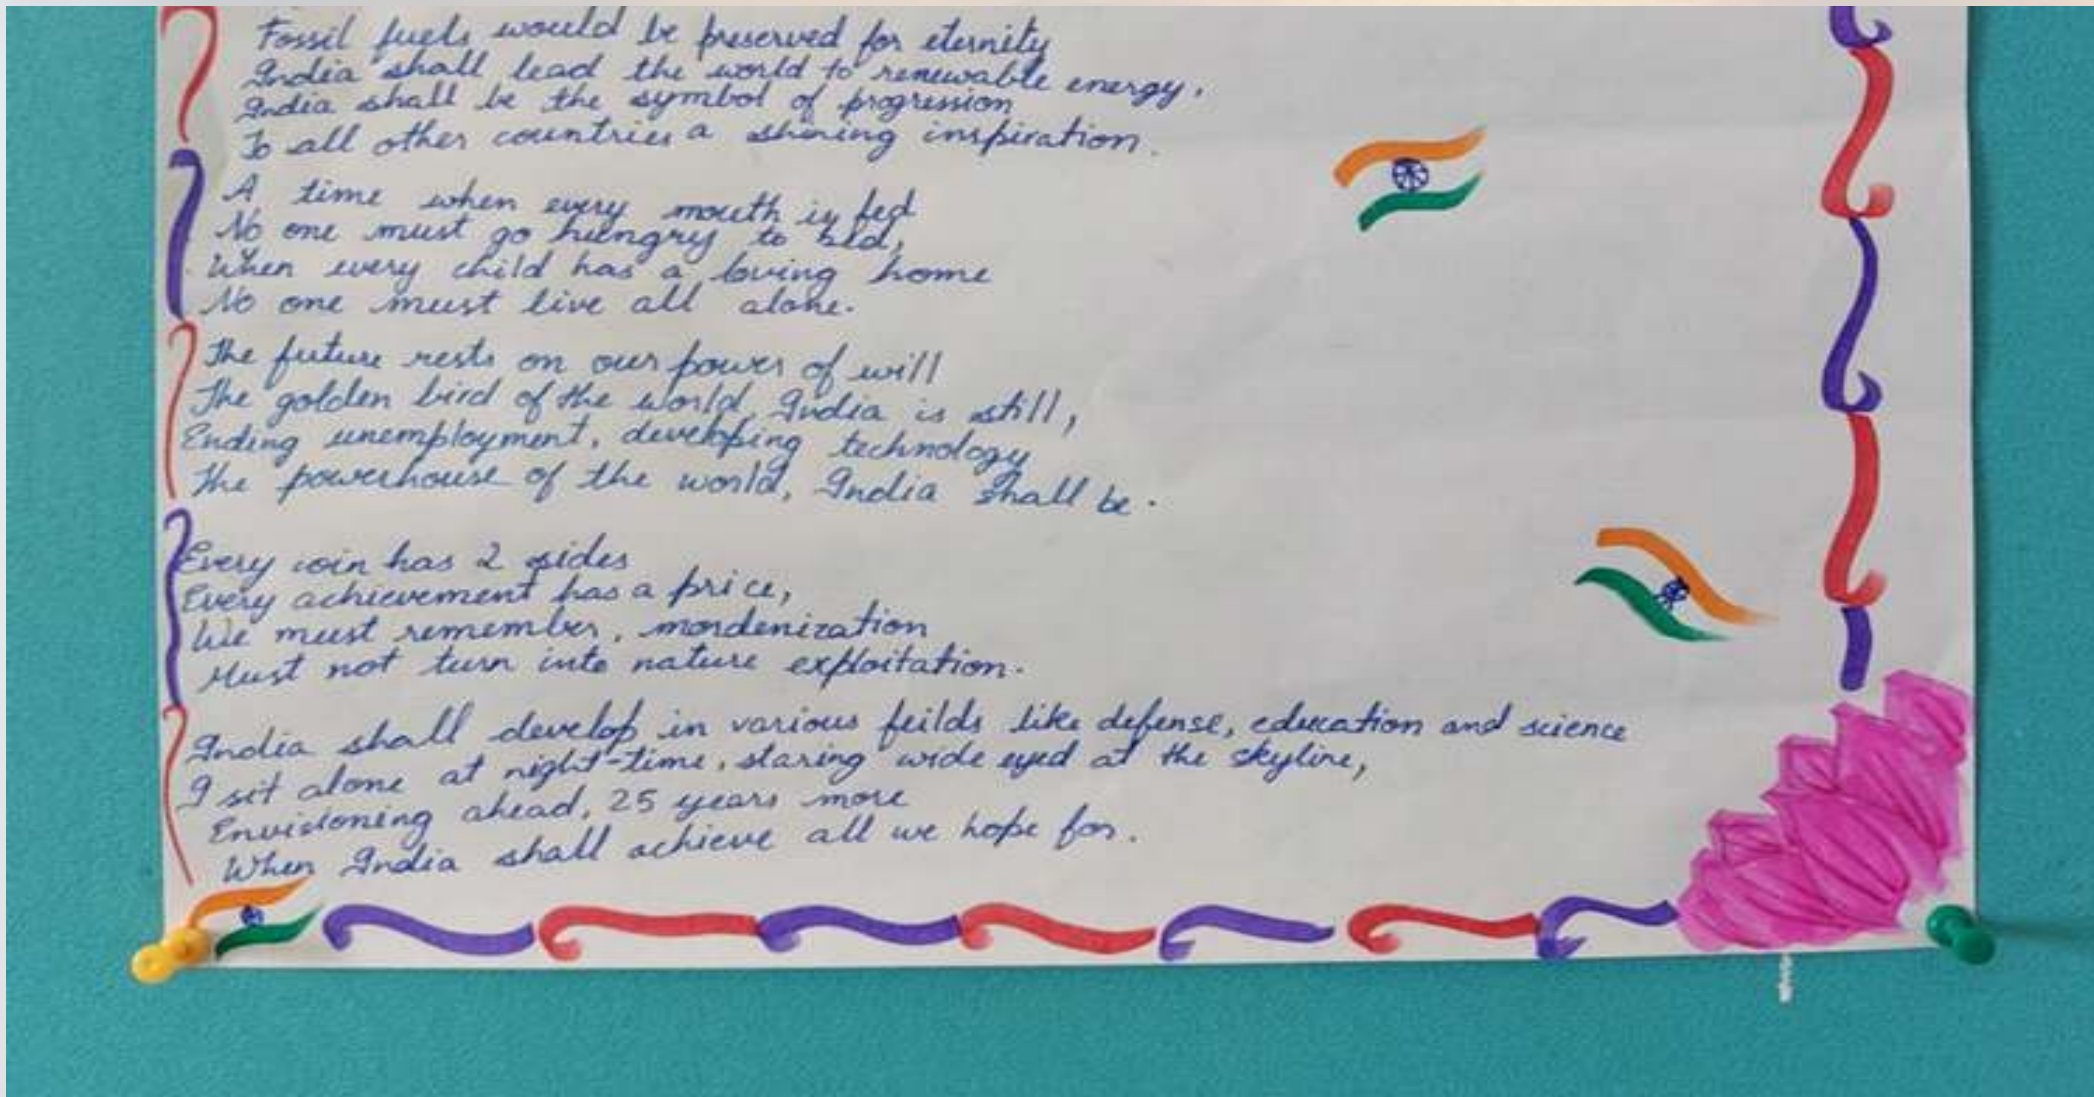 Fossil fuels would be preserved for eternity
India shall lead the world to renewable energy,
India shall be the symbol of progression
To all other countries a shining inspiration.
A time when every mouth is fed
No one must go hungry to bed,
When every child has a loving home
No one must live all alone.
The future rests on our power of will
The golden bird of the world, India is still,
Ending unemployment, developing technology
The powerhouse of the world, India shall be.
Every coin has 2 sides
Every achievement has a price,
We must remember, mordenization
Must not turn into nature exploitation.
India shall develop in various feilds like defense, education and science
I sit alone at night-time, staring wide eyed at the skyline,
Envisioning ahead, 25 years more
When India shall achieve all we hope for.